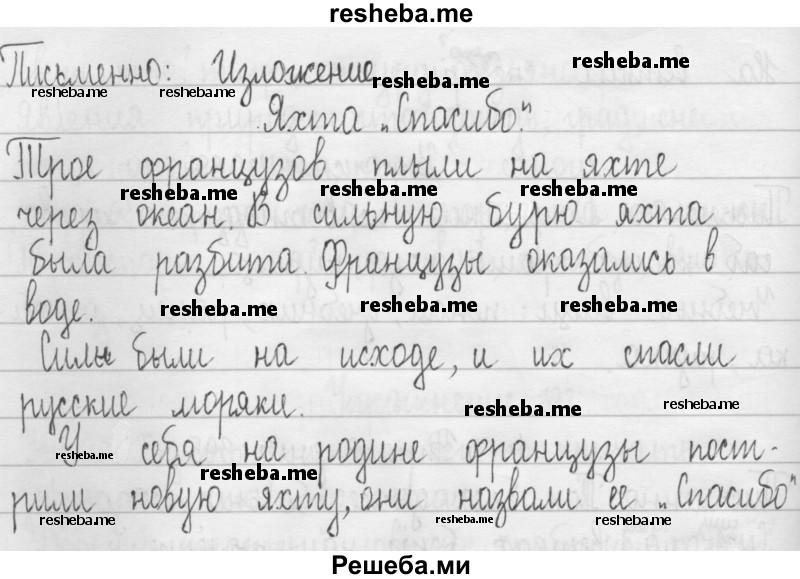 resheba.me
Письменно: Изложение
resheba.me
resheba.me resheba.me resheba.me
Яхта „Спасибо."
Трое французов плыли на яхте
resheba.me resheba.me resheba.me
через океан. В сильную бурю яхта
была разбита. Французы оказались в
воде.
resheba.me resheba.me resheba.me
Силы были на исходе, и их спасли
русские моряки.
resheba.me resheba.me
У себя на родине французы пост-
resheba.me resheba.me
рили новую яхту, они назвали ее „Спасибо"
resheba.me resheba.me resheba.me
Решеба.ми